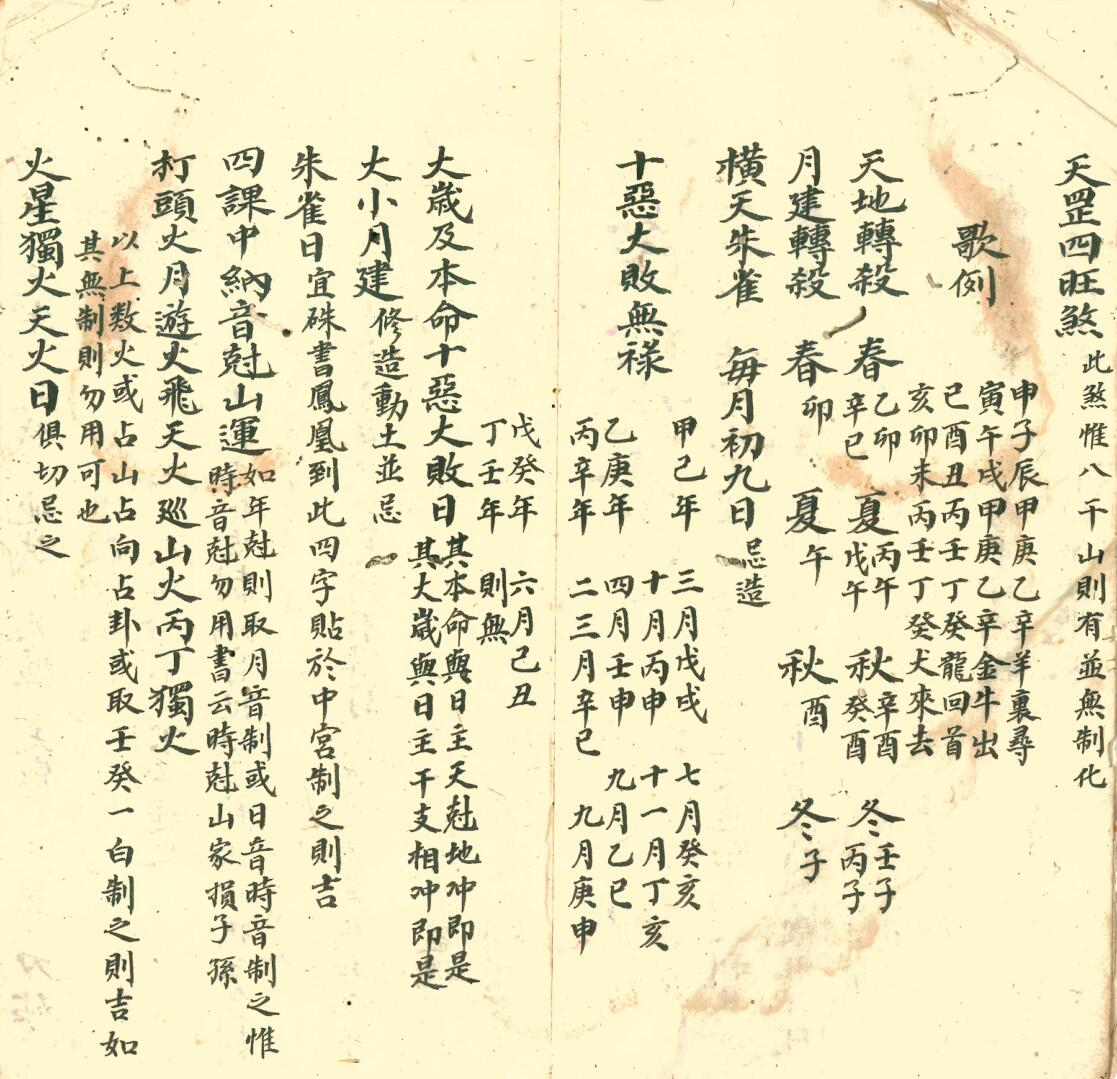 天罡四旺煞 此煞惟八干山則有並無制化
歌例
申子辰甲庚乙辛羊裏尋
寅午戌甲庚乙辛金牛出
巳酉丑丙壬丁癸龍回首
亥卯未丙壬丁癸犬來去
天地轉殺 春 乙卯 辛巳 夏 丙午 戊午 秋 辛酉 癸酉 冬 壬子 丙子
月建轉殺 春卯 夏午 秋酉 冬子
橫天朱雀 每月初九日 忌造
十惡大敗無祿
甲己年 三月戊戌 七月癸亥
十月丙申 十一月丁亥
乙庚年 四月壬申 九月乙巳
丙辛年 二三月辛巳 九月庚申
戊癸年 六月己丑
丁壬年 則無
大歲及本命十惡大敗日 其本命與日主天尅地冲即是
其大歲與日主干支相冲即是
大小月建 修造動土並忌
朱雀日宜硃書鳳凰到此四字貼於中宮制之則吉
四課中納音尅山運 如年尅則取月音制或日音時音制之惟
時音尅勿用書云時尅山家損子孫
打頭火月遊火飛天火廵山火丙丁獨火
以上数火或占山占向占卦或取壬癸一白制之則吉如
其無制則勿用可也
火星獨火天火日 俱切忌之